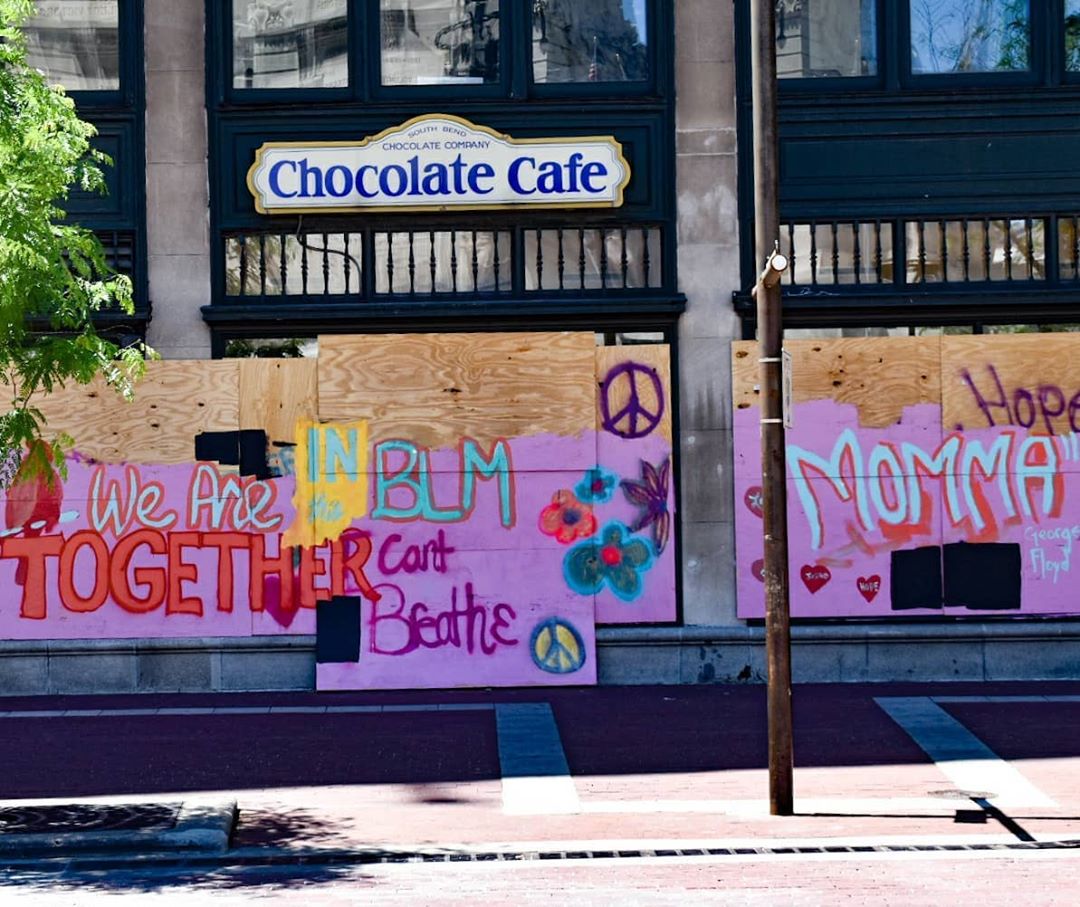 SOUTH BEND
CHOCOLATE COMPANY
Chocolate Cafe
We Are
TOGETHER
IN
the
BLM
I Cant
Breathe
Hope
MOMMA"
George
Floyd
HOPE